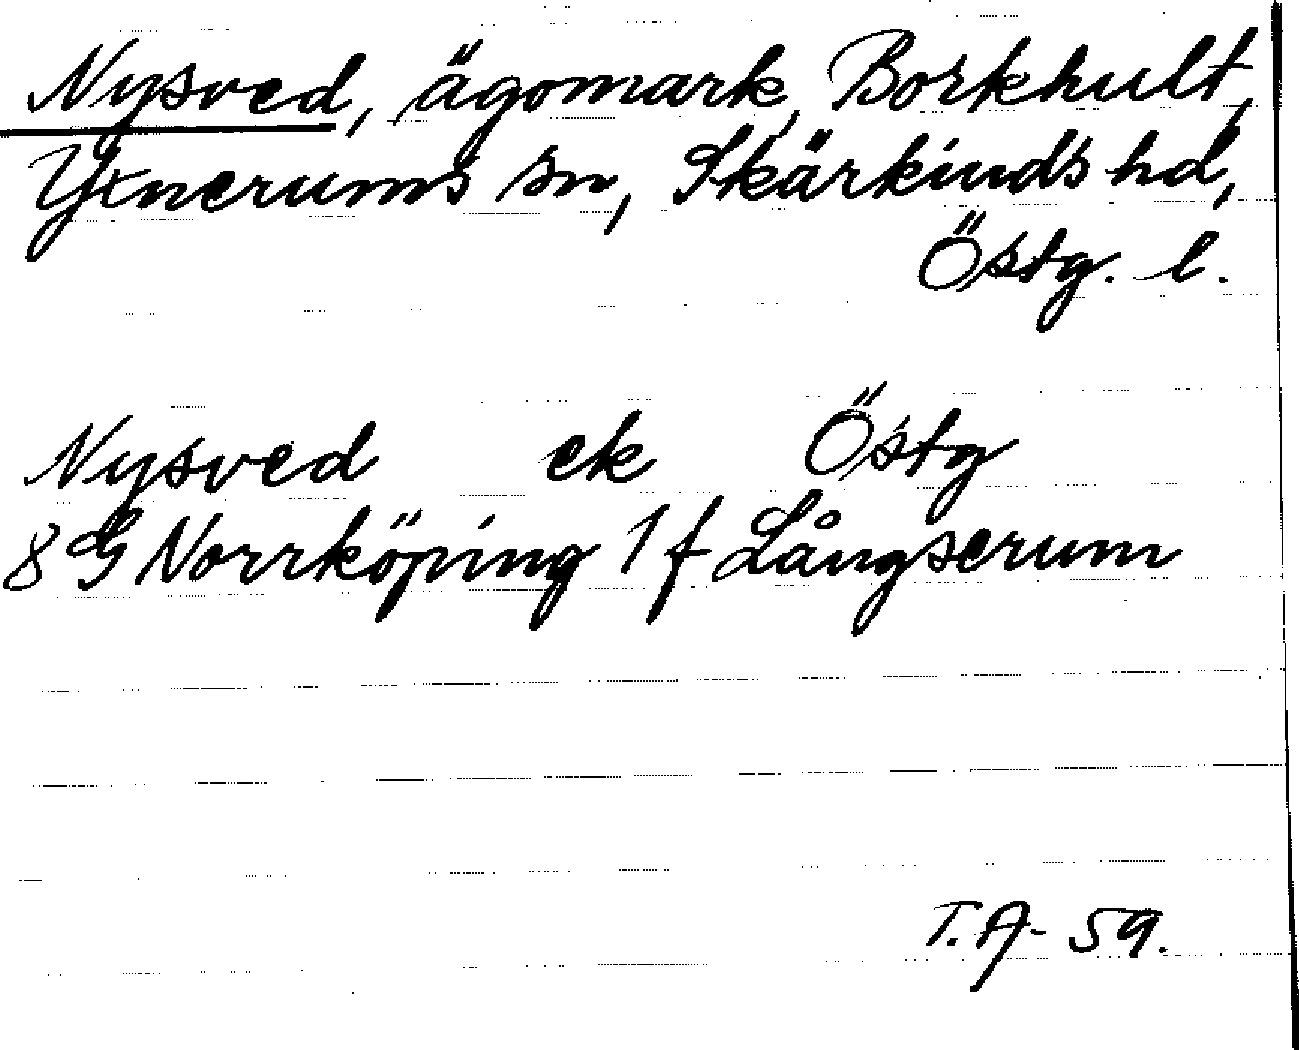 Nysved, ägomark, Borkhult,
Yxnerums sn, Skärkinds hd,
Östg. l.
Nysved ek Östg
8 G Norrköping 1 f Långserum
T.A- 59.